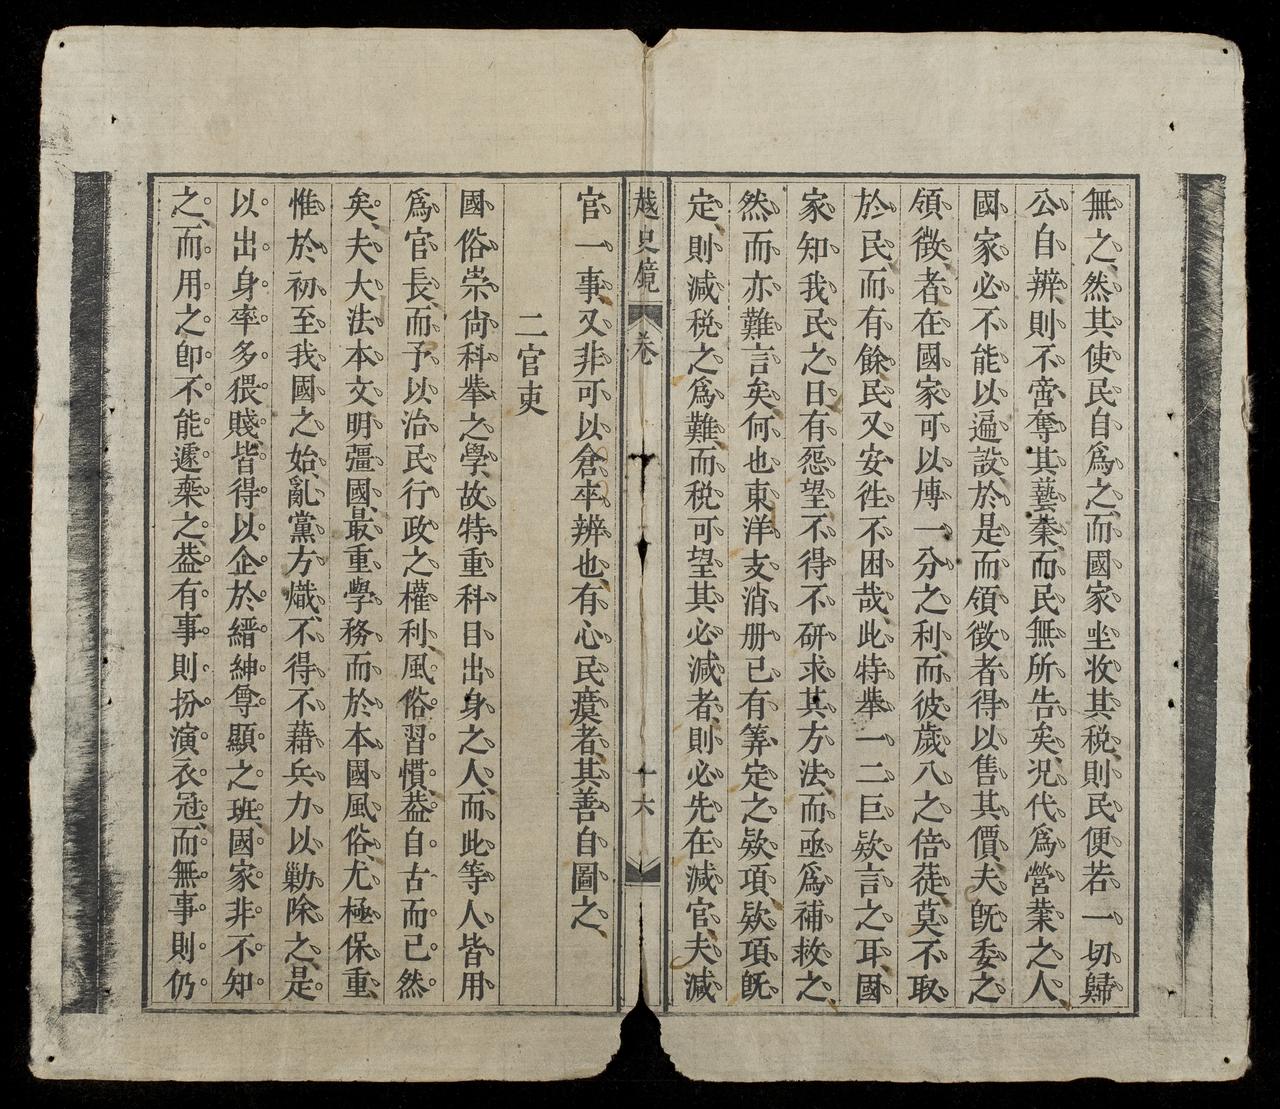 無之然其使民自爲之而國家坐收其税則民便若一切歸
公自辨則不啻奪其藝業而民無所告矣况代爲營業之人
國家必不能以遍設於是而領徵者得以售其價夫旣委之
領徵者在國家可以博一分之利而彼歲八之倍蓰莫不取
於民而有餘民又安徃不困哉此特舉一二巨欵言之耳國
家知我民之日有怨望不得不研求其方法而亟爲補救之
然而亦難言矣何也東洋支消册已有筭定之欵項欵項旣
定則減税之爲難而税可望其必減者則必先在減官夫減
越史鏡 卷 十六
官一事又非可以倉卒辨也有心民瘼者其善自圖之
二官吏
國俗崇尙科舉之學故特重科目出身之人而此等人皆用
爲官長而予以治民行政之權利風俗習慣葢自古而已然
矣夫大法本文明彊國最重學務而於本國風俗尤極保重
惟於初至我國之始亂黨方熾不得不藉兵力以勦除之是
以出身率多猥賤皆得以企於縉紳尊顯之班國家非不知
之而用之卽不能遽棄之葢有事則扮演衣冠而無事則仍